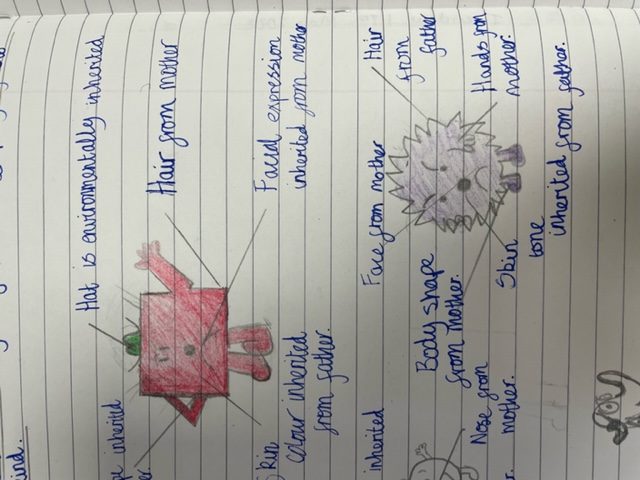 Hat is environmentally inherited
inherited
Hair from mother
Facial expression
inherited from mother
Skin
colour inherited
from father.
inherited
Face from mother
Hair
from
father
Body shape
from mother.
Nose from
mother.
Hands from
mother.
Skin
tone
inherited from father.